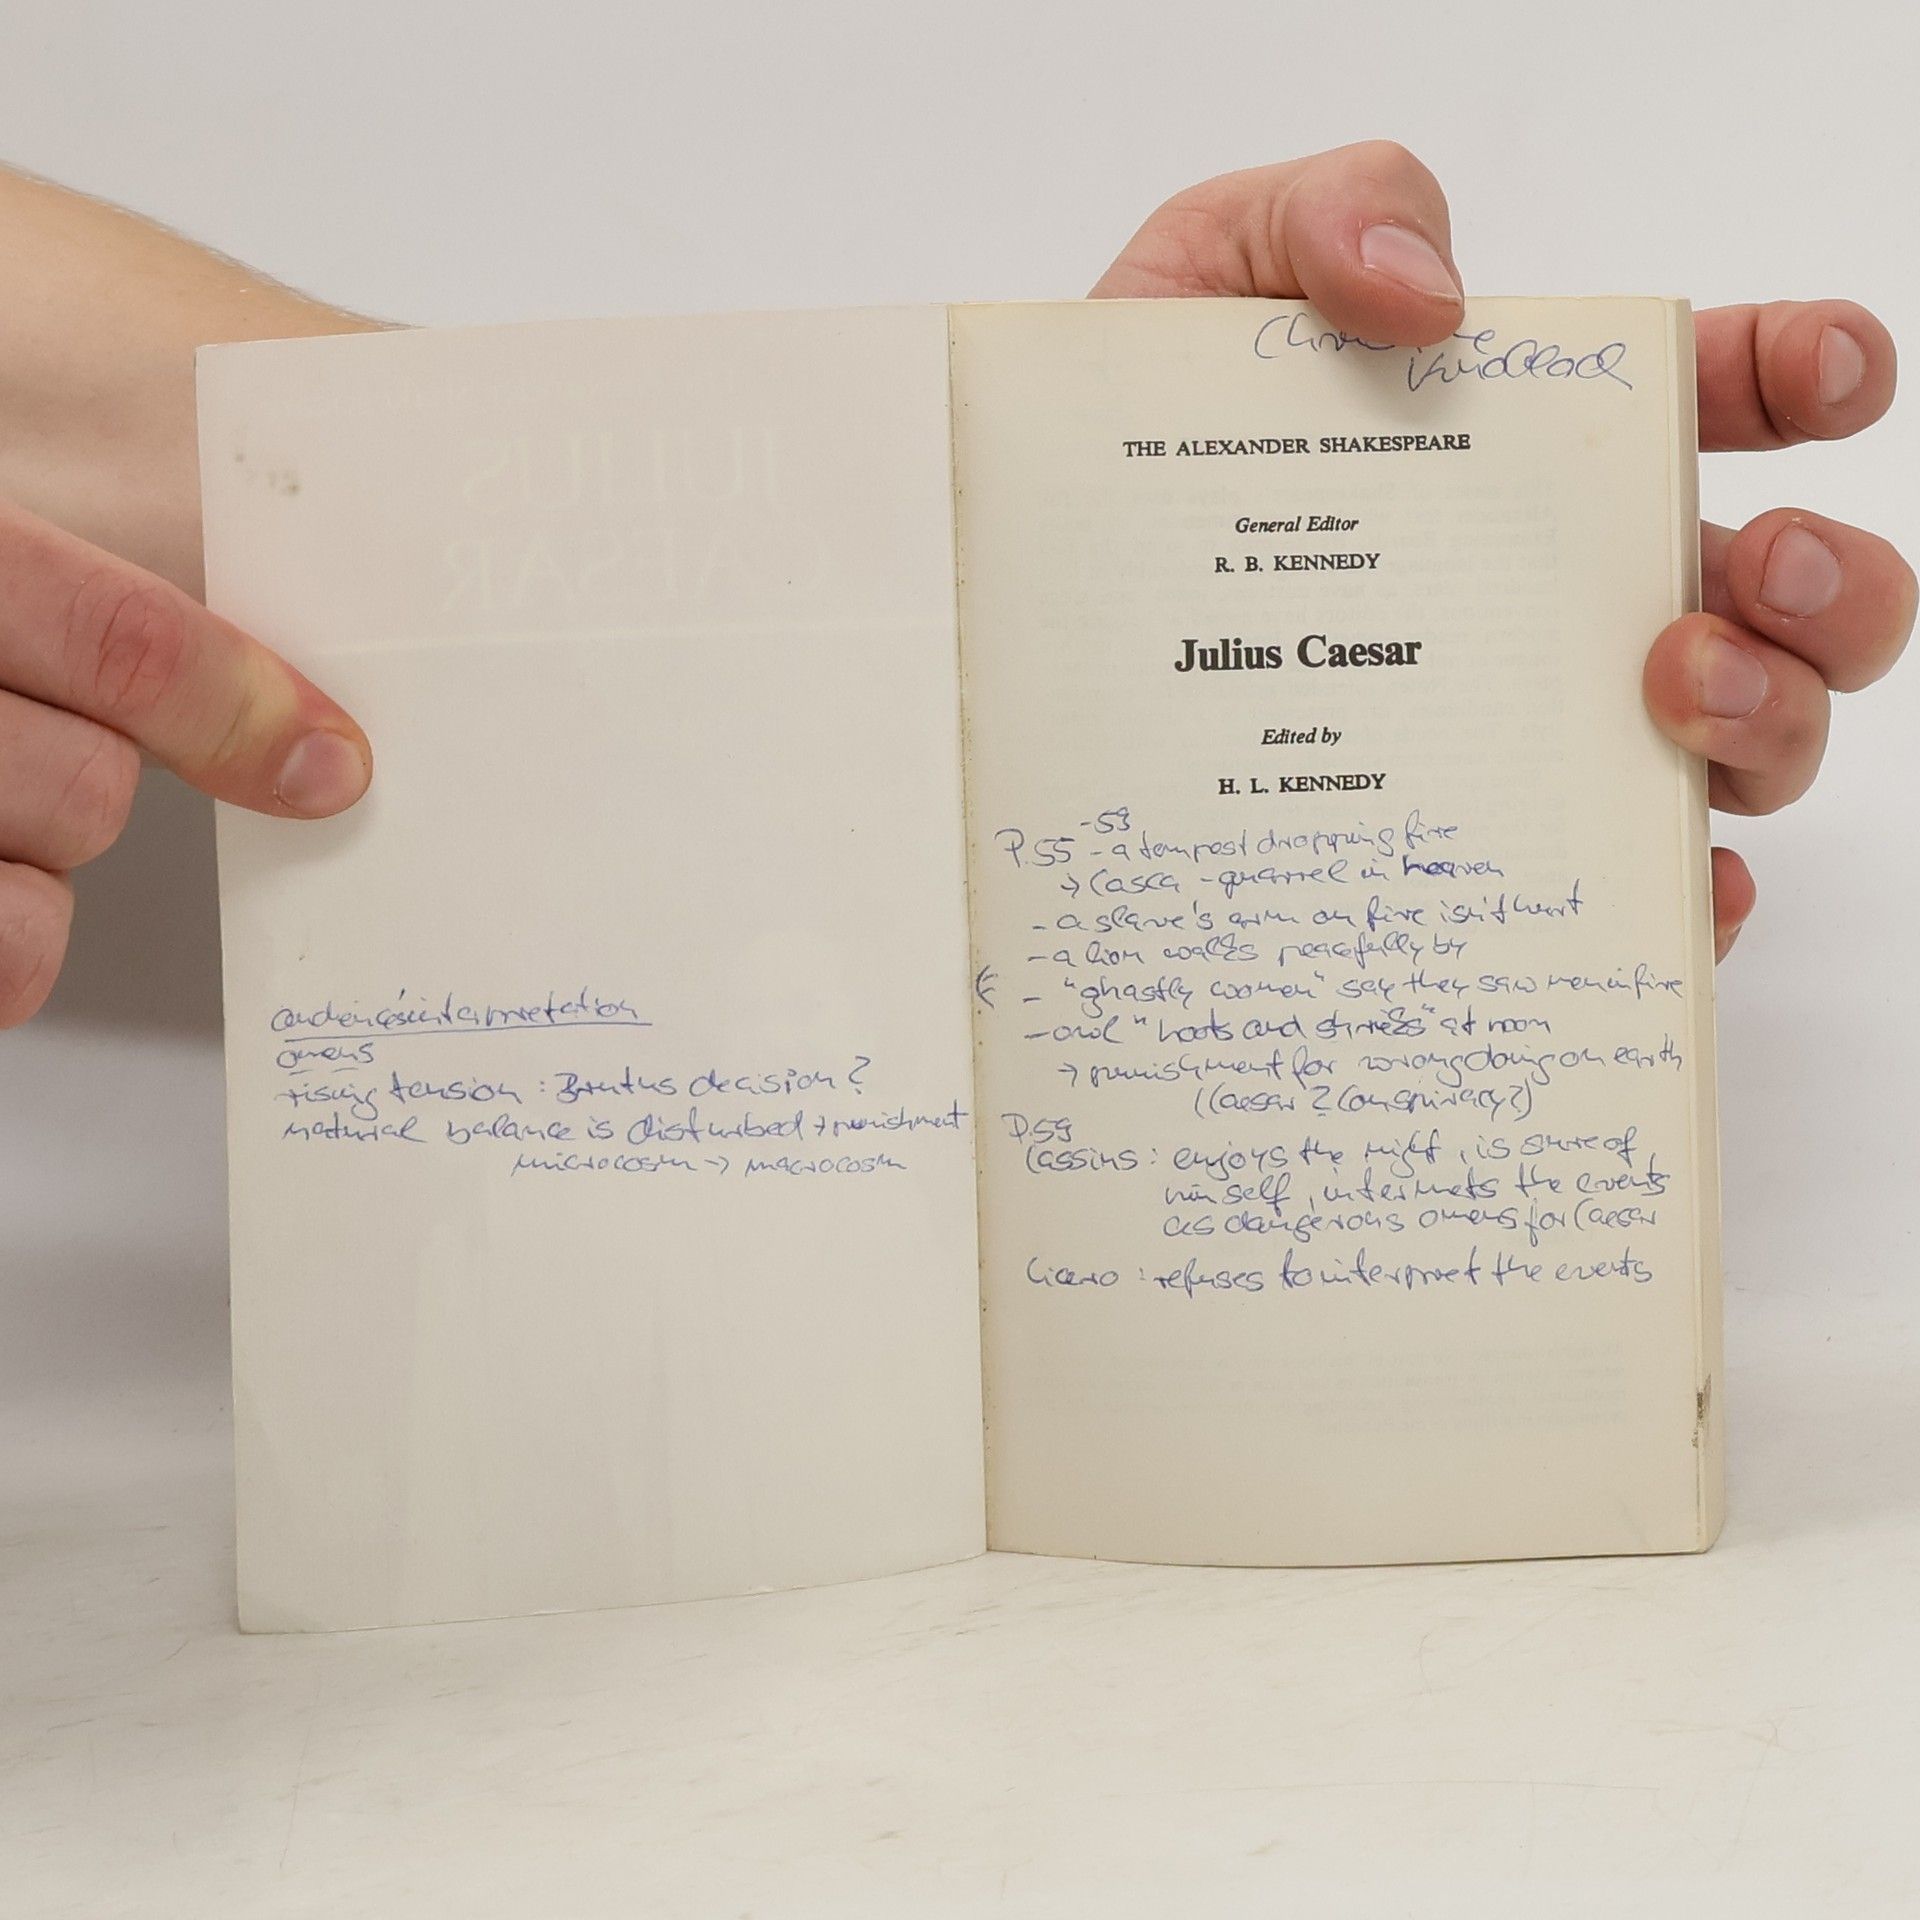 audience's interpretation
omens
rising tension : Brutus decision ?
natural balance is disturbed → punishment
microcosm → macrocosm
THE ALEXANDER SHAKESPEARE
General Editor
R. B. KENNEDY
Julius Caesar
Edited by
H. L. KENNEDY
-59
P.55 - a tempest dropping fire
→ Casca - quarrel in heaven
- a slave's arm on fire isn't hurt
- a lion walks peacefully by
- "ghastly women" say they saw men in fire
- owl "hoots and shrieks" at noon
→ punishment for wrongdoing on earth
(Caesar ? Conspiracy?)
P.59
Cassius : enjoys the night, is sure of
himself, interprets the events
as dangerous omens for Caesar
Cicero : refuses to interpret the events